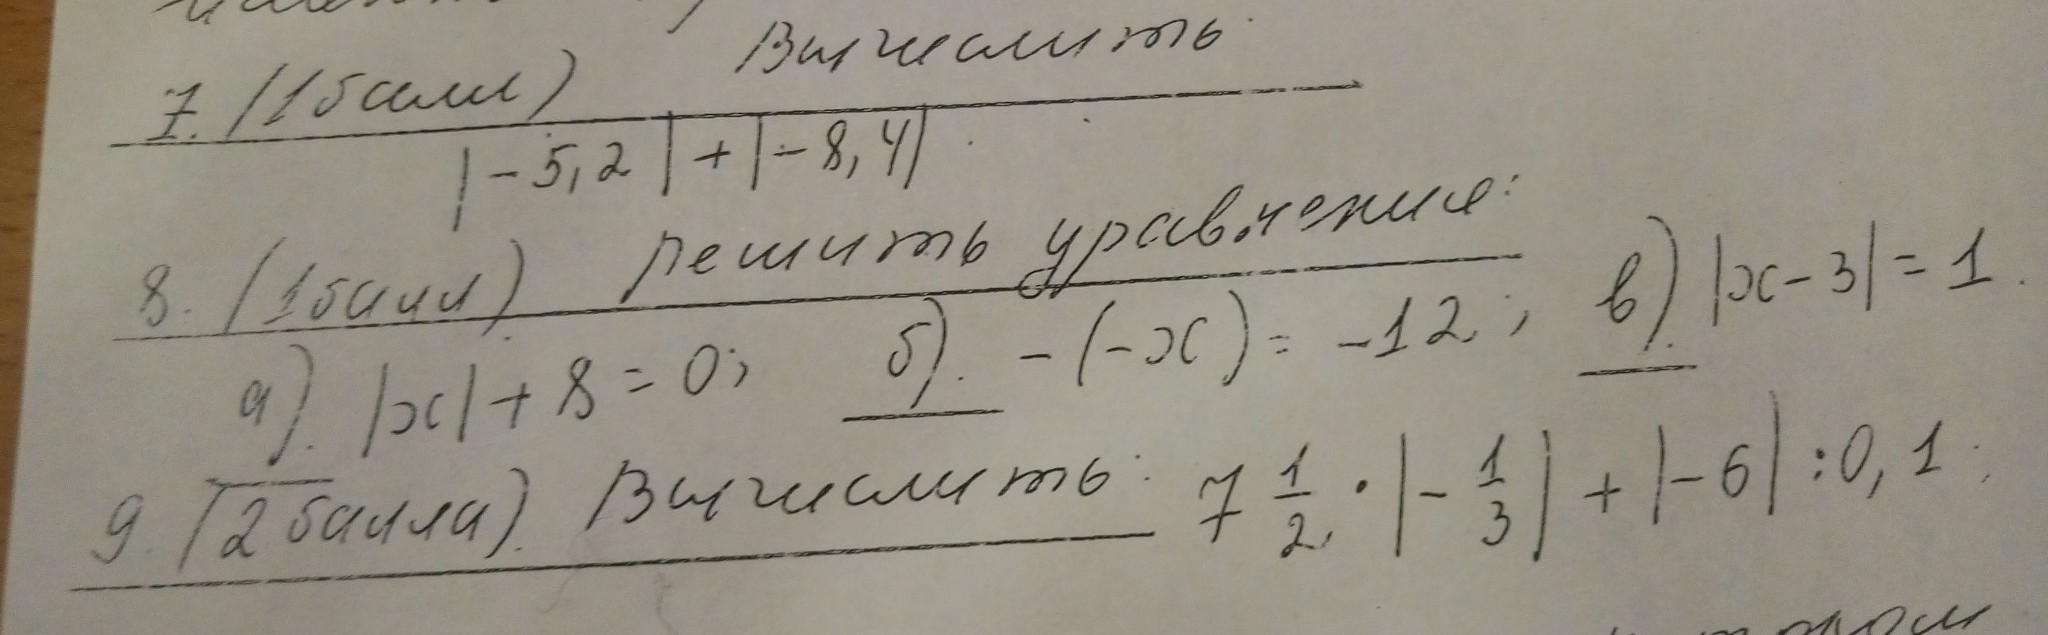 7. (1балл) Вычислить
|-5,2|+|-8,4|.
8. (1балл) Решить уравнения:
а). |x|+8=0; б). -(-x)=-12; в). |x-3|=1.
9. (2балла). Вычислить: 7 1/2 · |-1/3| + |-6| : 0,1.